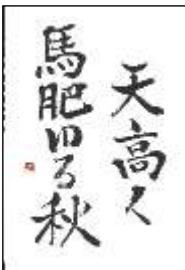 天高く
馬肥ゆる秋